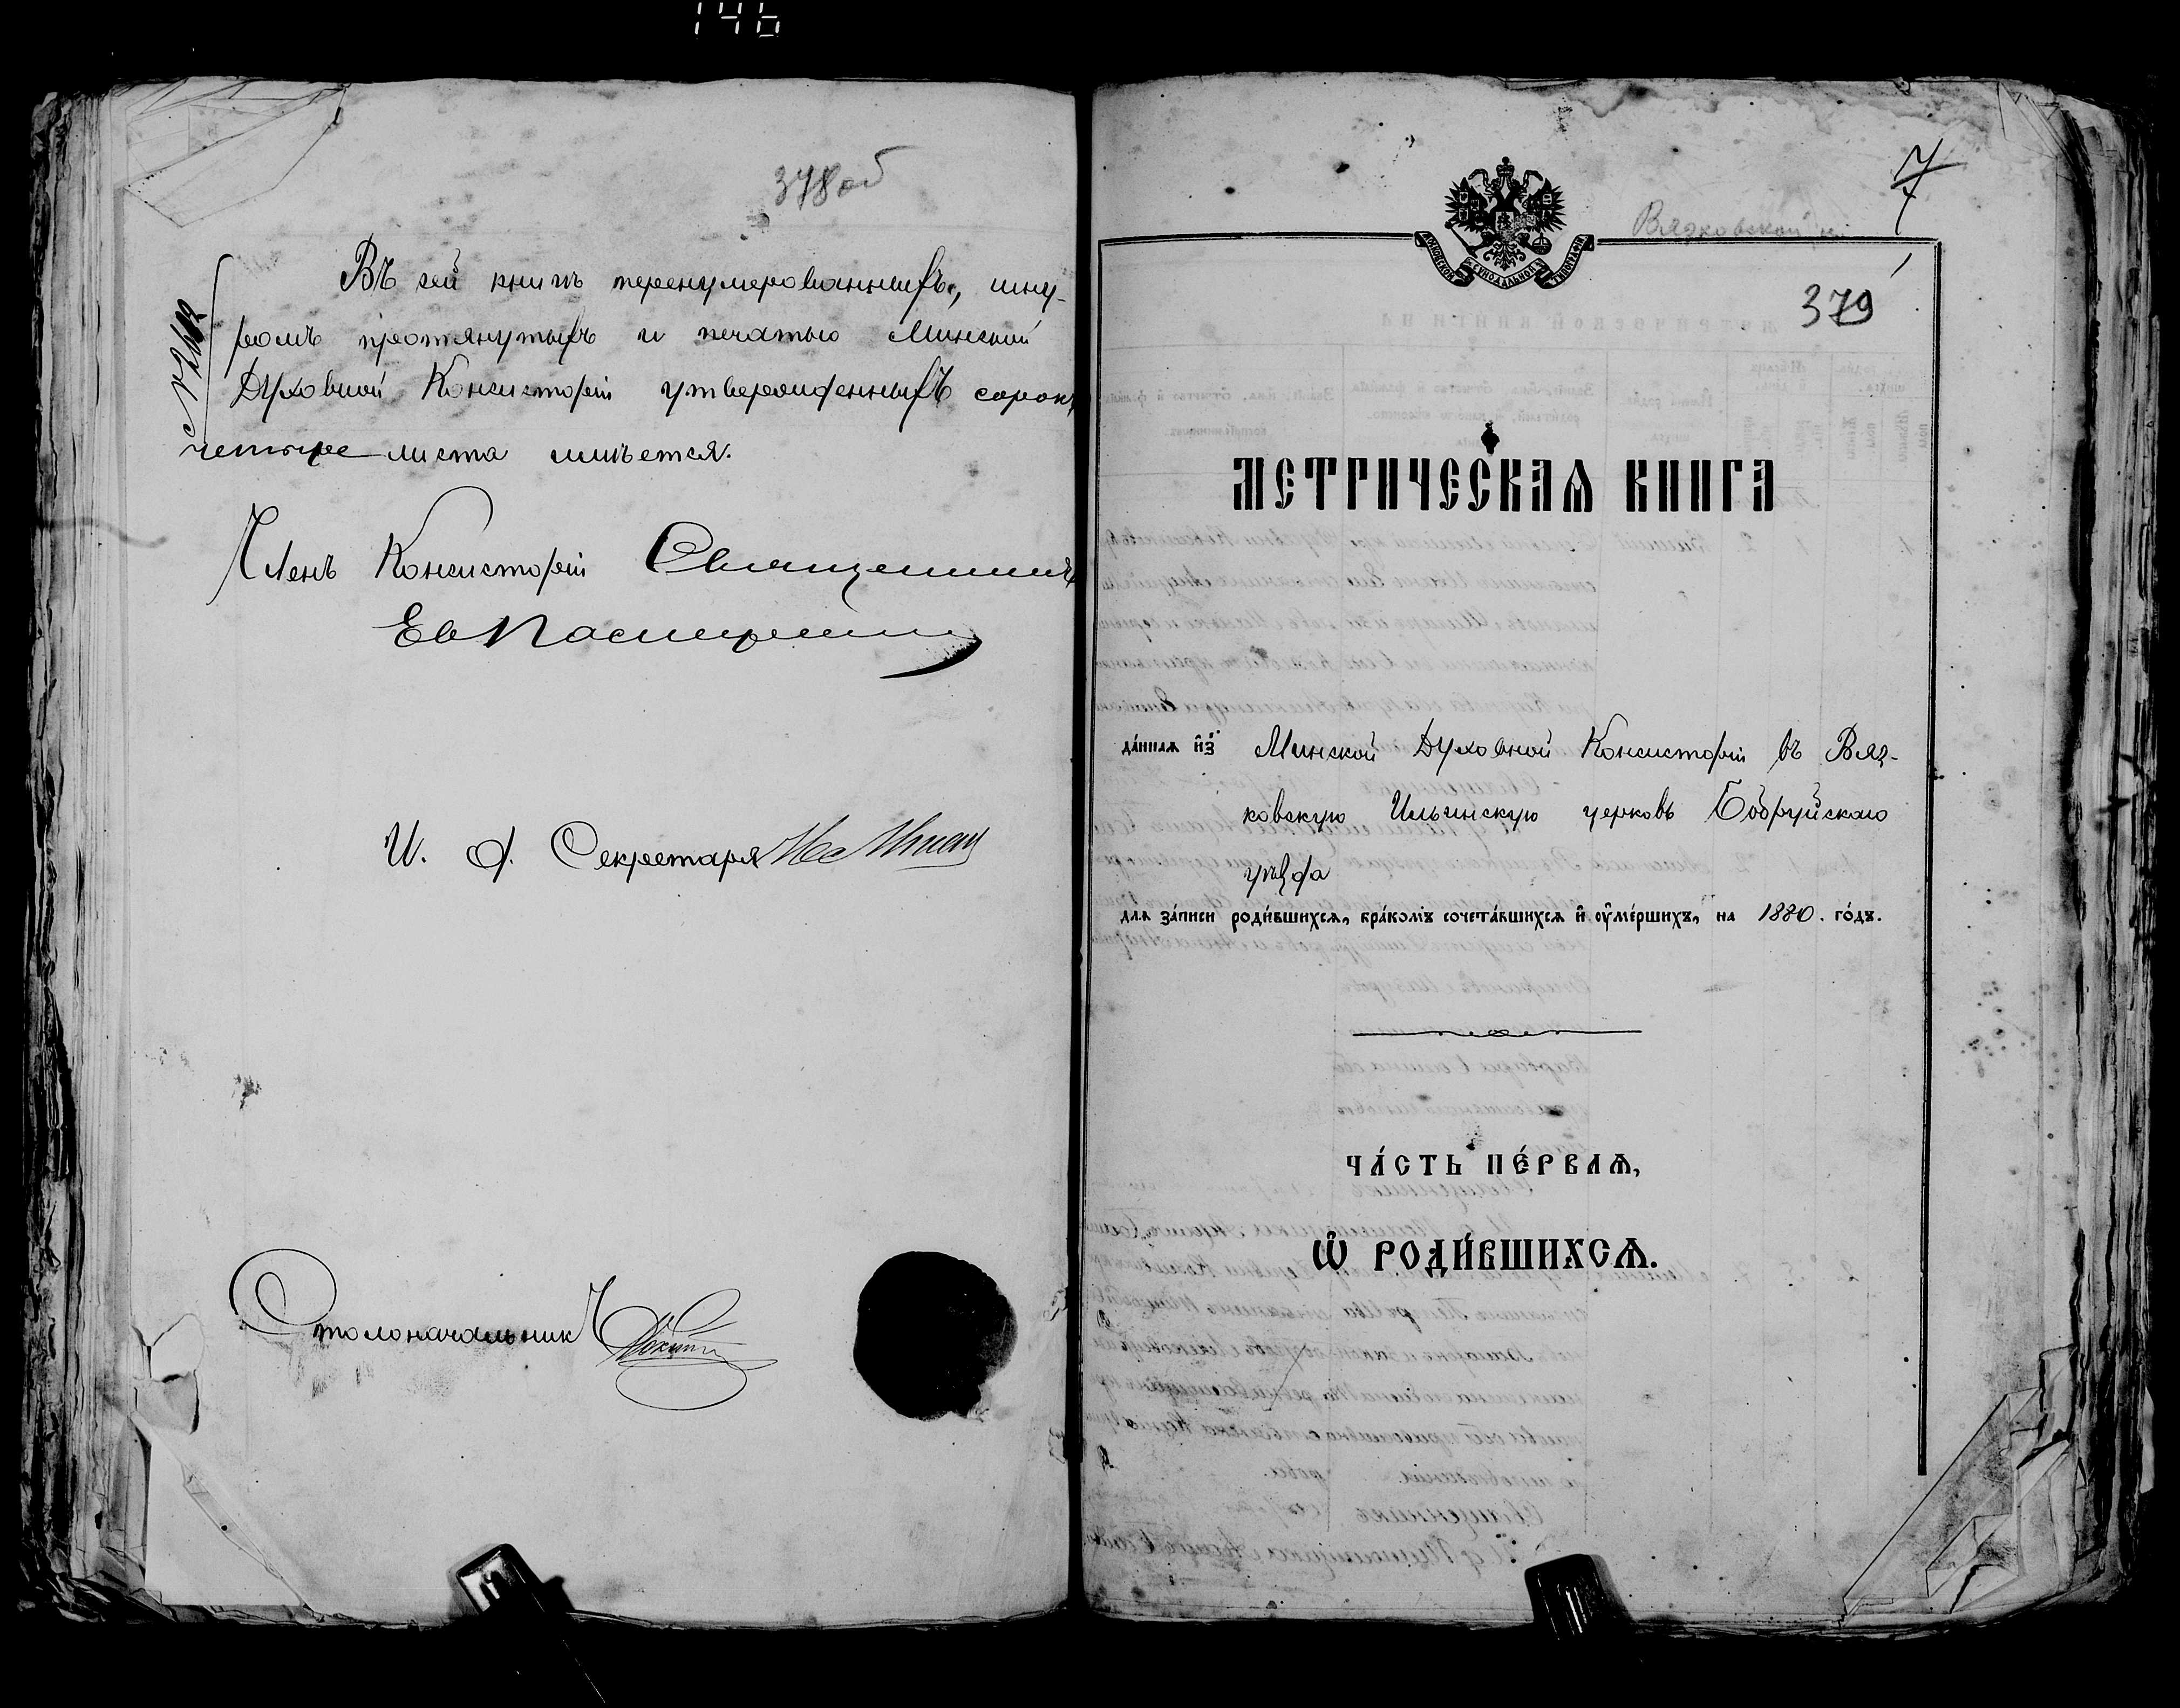 146
378 об
Въ сей книгѣ перенумерованныхъ, шну-
ромъ протянутыхъ и печатью Минской
Духовной Консисторіи утвержденныхъ сорокъ
четыре листа имѣется.
Членъ Консисторіи Священникъ
И. д. Секретаря
Столоначальникъ
7
Вязковской ц.
МОСКОВСКОЙ СУНОДАЛЬНОЙ ТИПОГРАФІИ
379
МЕТРИЧЕСКАѦ КНИГА
да́ннаѧ и҆з̾ Минской Духовной Консисторіи въ Вяз-
ковскую Ильинскую церковь Бобруйскаго
уѣзда
длѧ за́писи роди́вшихсѧ, бра́комъ сочета́вшихсѧ и҆ ᲂу҆ме́ршихъ, на 1880. го́дъ.
ЧА́СТЬ ПЕ́РВАѦ,
Ѡ҆ РОДИ́ВШИХСѦ.